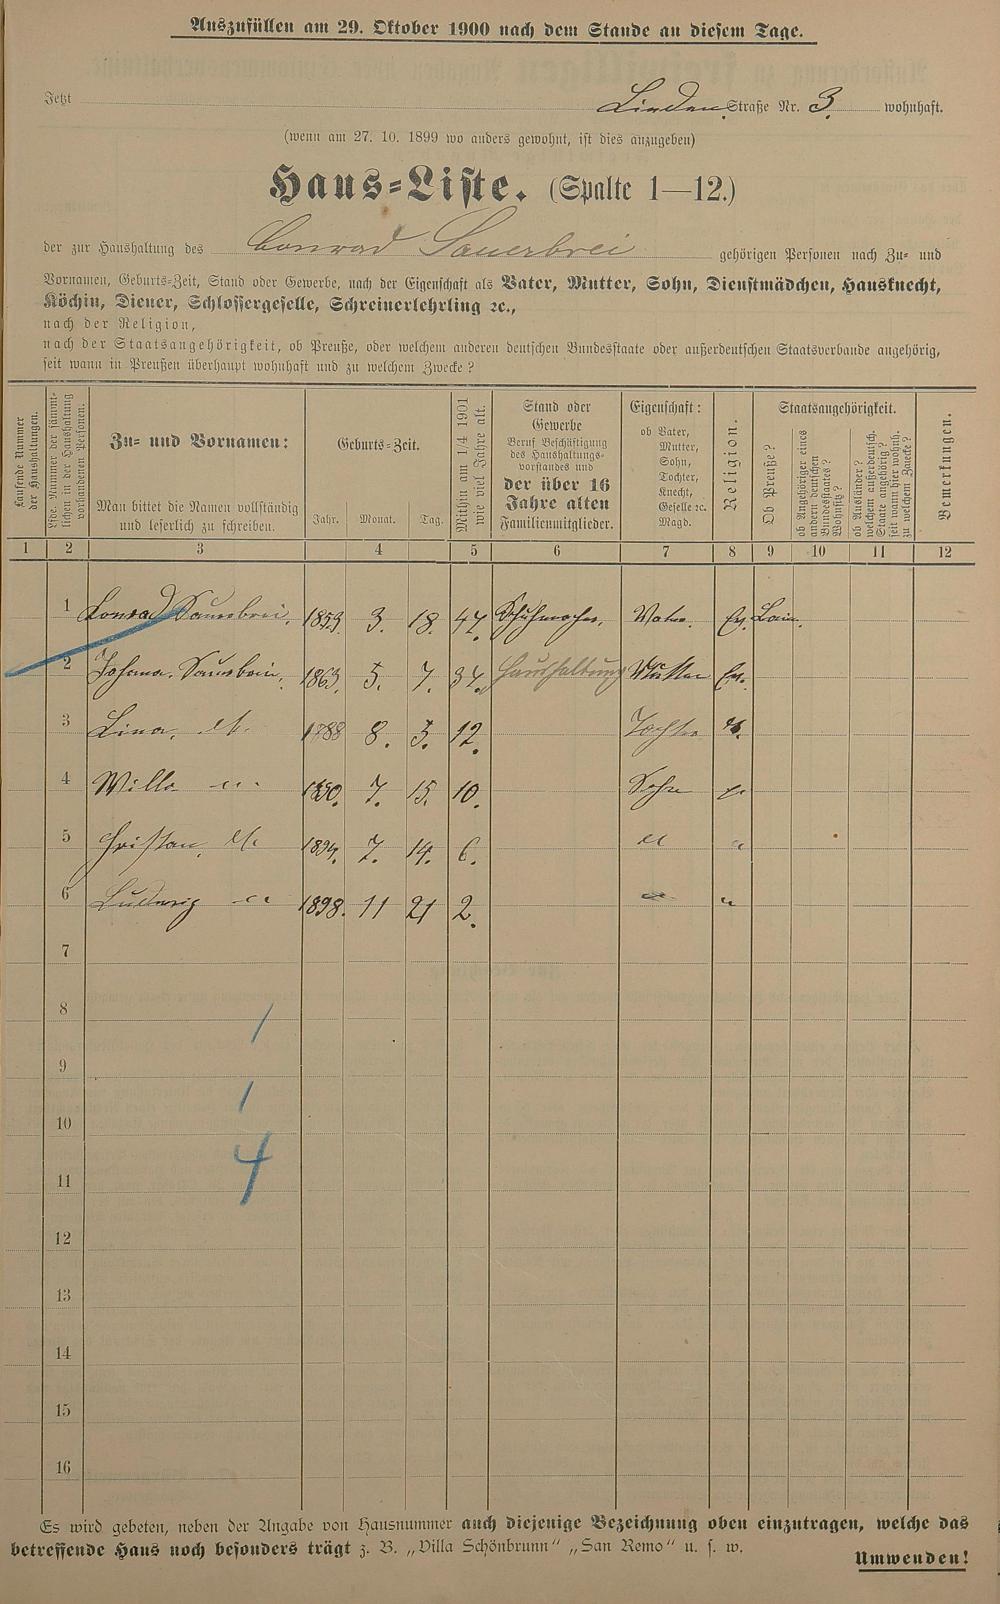 Auszufüllen am 29. Oktober 1900 nach dem Stande an diesem Tage.
Jetzt Linden Straße Nr. 3. wohnhaft.
(wenn am 27. 10. 1899 wo anders gewohnt, ist dies anzugeben)
Haus=Liste. (Spalte 1—12.)
der zur Haushaltung des Conrad Sauerbrei gehörigen Personen nach Zu= und
Vornamen, Geburts=Zeit, Stand oder Gewerbe, nach der Eigenschaft als Vater, Mutter, Sohn, Dienstmädchen, Hausknecht,
Köchin, Diener, Schlossergeselle, Schreinerlehrling ꝛc.,
nach der Religion,
nach der Staatsangehörigkeit, ob Preuße, oder welchem anderen deutschen Bundesstaate oder außerdeutschen Staatsverbande angehörig,
seit wann in Preußen überhaupt wohnhaft und zu welchem Zwecke?
Laufende Nummer
der Haushaltungen.
Lfde. Nummer der sämmt=
lichen in der Haushaltung
vorhandenen Personen.
Zu= und Vornamen:
Man bittet die Namen vollständig
und leserlich zu schreiben.
Geburts=Zeit.
Jahr. Monat. Tag.
Mithin am 1/4 1901
wie viel Jahre alt.
Stand oder
Gewerbe
Beruf Beschäftigung
des Haushaltungs=
vorstandes und
der über 16
Jahre alten
Familienmitglieder.
Eigenschaft:
ob Vater,
Mutter,
Sohn,
Tochter,
Knecht,
Geselle ꝛc.
Magd.
Religion.
Staatsangehörigkeit.
Ob Preuße?
ob Angehöriger eines
andern deutschen
Bundesstaates?
Wohnsitz?
ob Ausländer?
welchem außerdeutsch.
Staate angehörig?
seit wann hier wohnh.
zu welchem Zwecke?
Bemerkungen.
1 2 3 4 5 6 7 8 9 10 11 12
1 Conrad Sauerbrei. 1853. 3. 18. 47. Schuhmacher. Vater. Ev.
2 Johanna Sauerbrei. 1863. 5. 7. 37. Haushaltung Mutter Ev.
3 Lina. 1888 8. 3. 12. Tochter
4 Willi " 1890. 7. 15. 10. Sohn
5 1894. 7. 14. 6. " "
6 Ludwig " 1898. 11 21 2. " "
7
8
1
9
1
10
4
11
12
13
14
15
16
Es wird gebeten, neben der Angabe von Hausnummer auch diejenige Bezeichnung oben einzutragen, welche das
betreffende Haus noch besonders trägt z. B. „Villa Schönbrunn“ „San Remo“ u. s. w.
Umwenden!